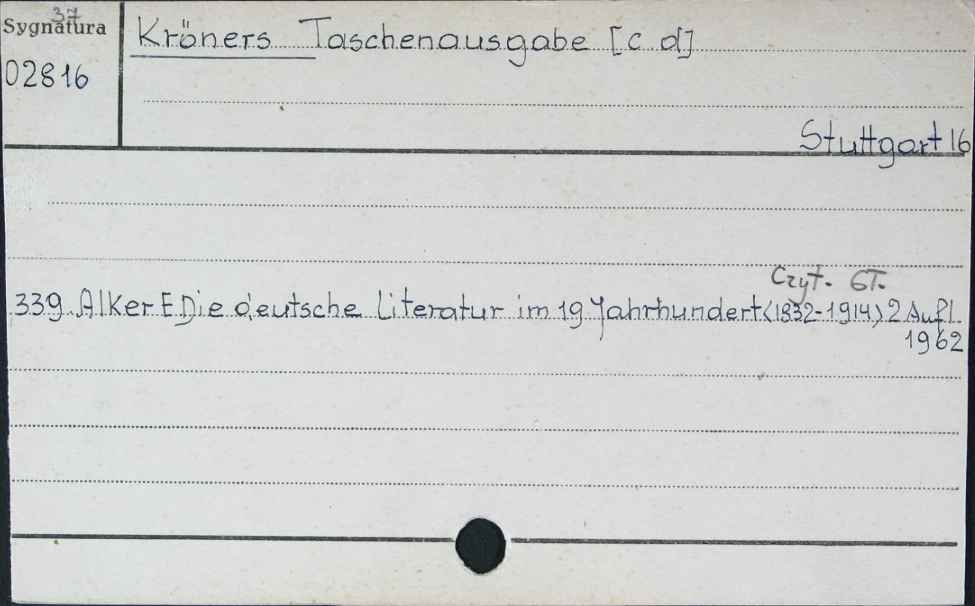 37
Sygnatura
02816
Kröners Taschenausgabe [c.d]
Stuttgart 16
Czyt. GT.
339. Alker E Die deutsche Literatur im 19 Jahrhundert (1832-1914) 2 Aufl.
1962